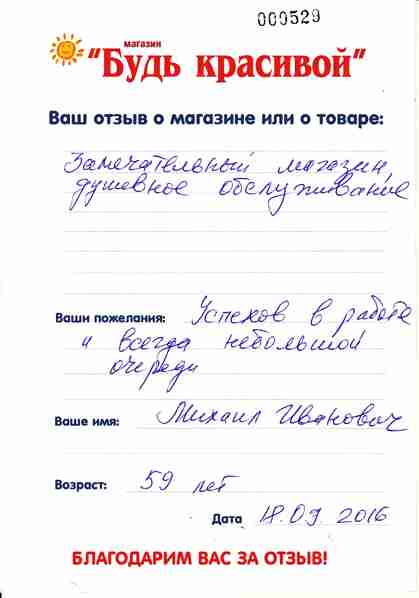 000529
магазин
"Будь красивой"
Ваш отзыв о магазине или о товаре:
Замечательный магазин,
душевное обслуживание
Ваши пожелания: Успехов в работе
и всегда небольшой
очереди
Ваше имя: Михаил Иванович
Возраст: 59 лет
Дата 18.09.2016
БЛАГОДАРИМ ВАС ЗА ОТЗЫВ!